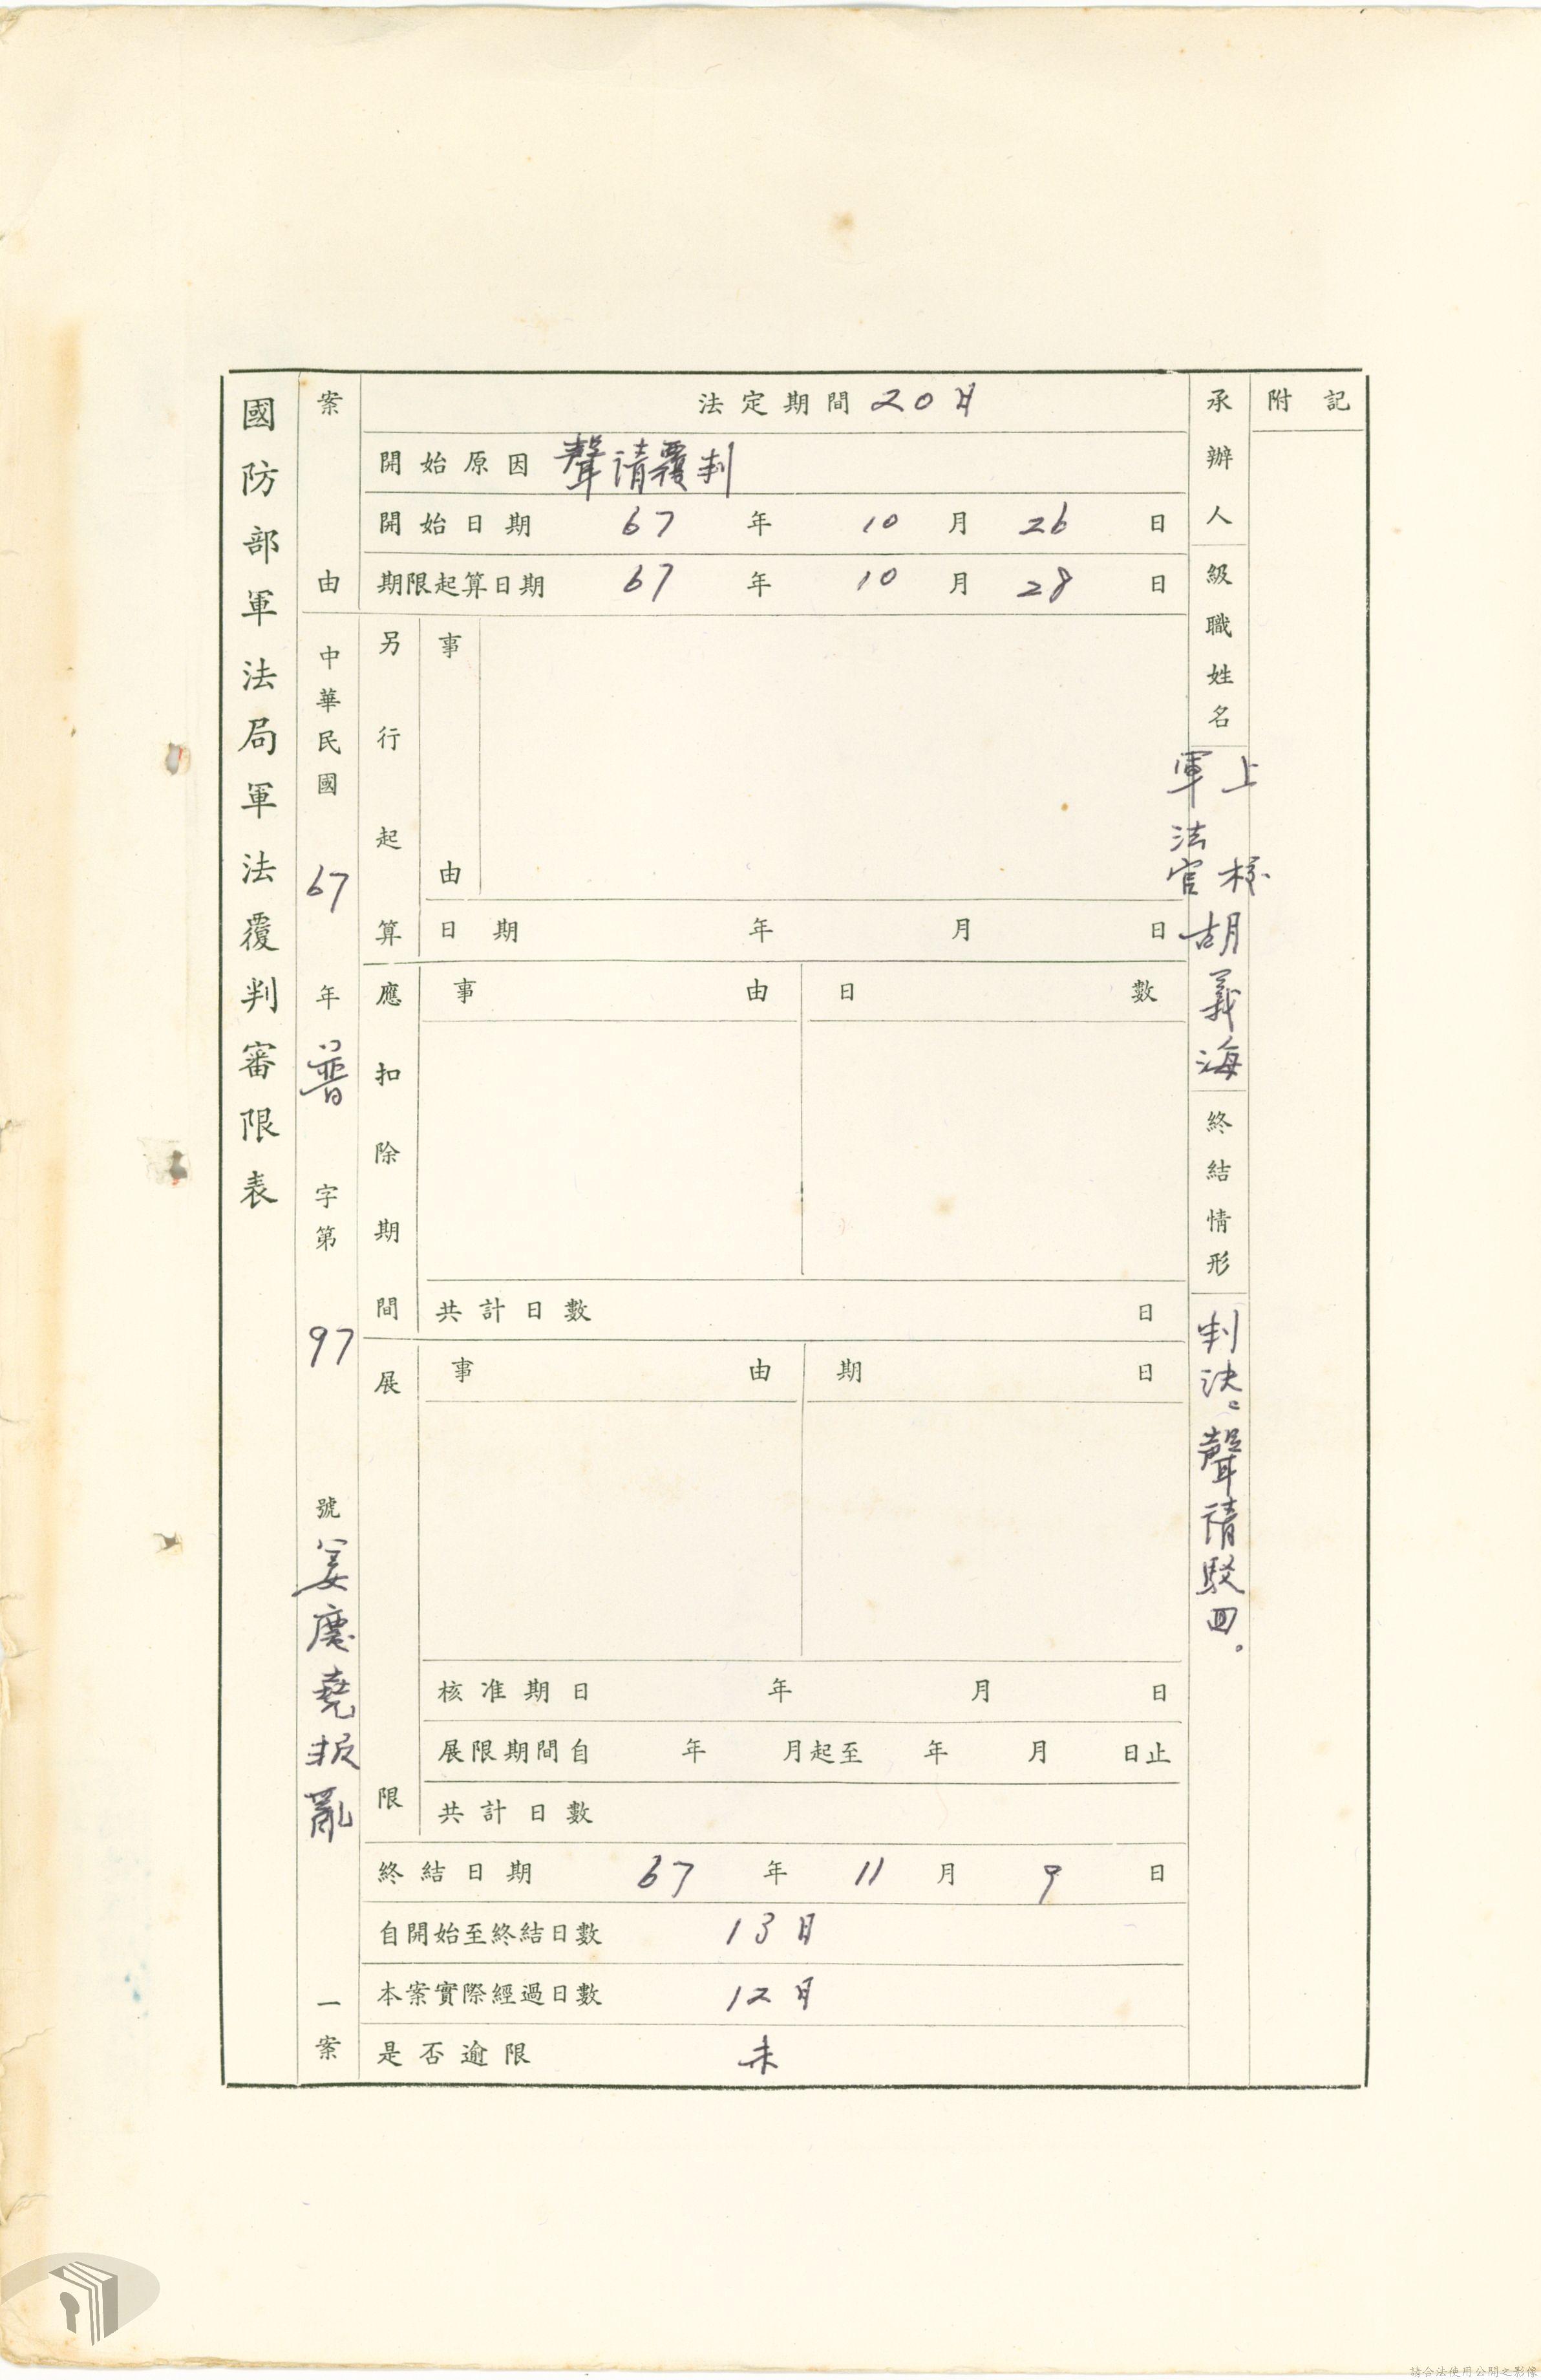 國防部軍法局軍法覆判審限表
案由
中華民國67年普字第97號姜慶堯叛亂一案
法定期間 20日
開始原因 聲請覆判
開始日期 67年10月26日
期限起算日期 67年10月28日
另行起算
事由
日期 年 月 日
應扣除期間
事由 日數
共計日數 日
展限
事由 期日
核准期日 年 月 日
展限期間自 年 月起至 年 月 日止
共計日數
終結日期 67年11月9日
自開始至終結日數 13日
本案實際經過日數 12日
是否逾限 未
承辦人級職姓名
上校
軍法官
胡義海
終結情形
判決。聲請駁回。
附記
請合法使用公開之影像